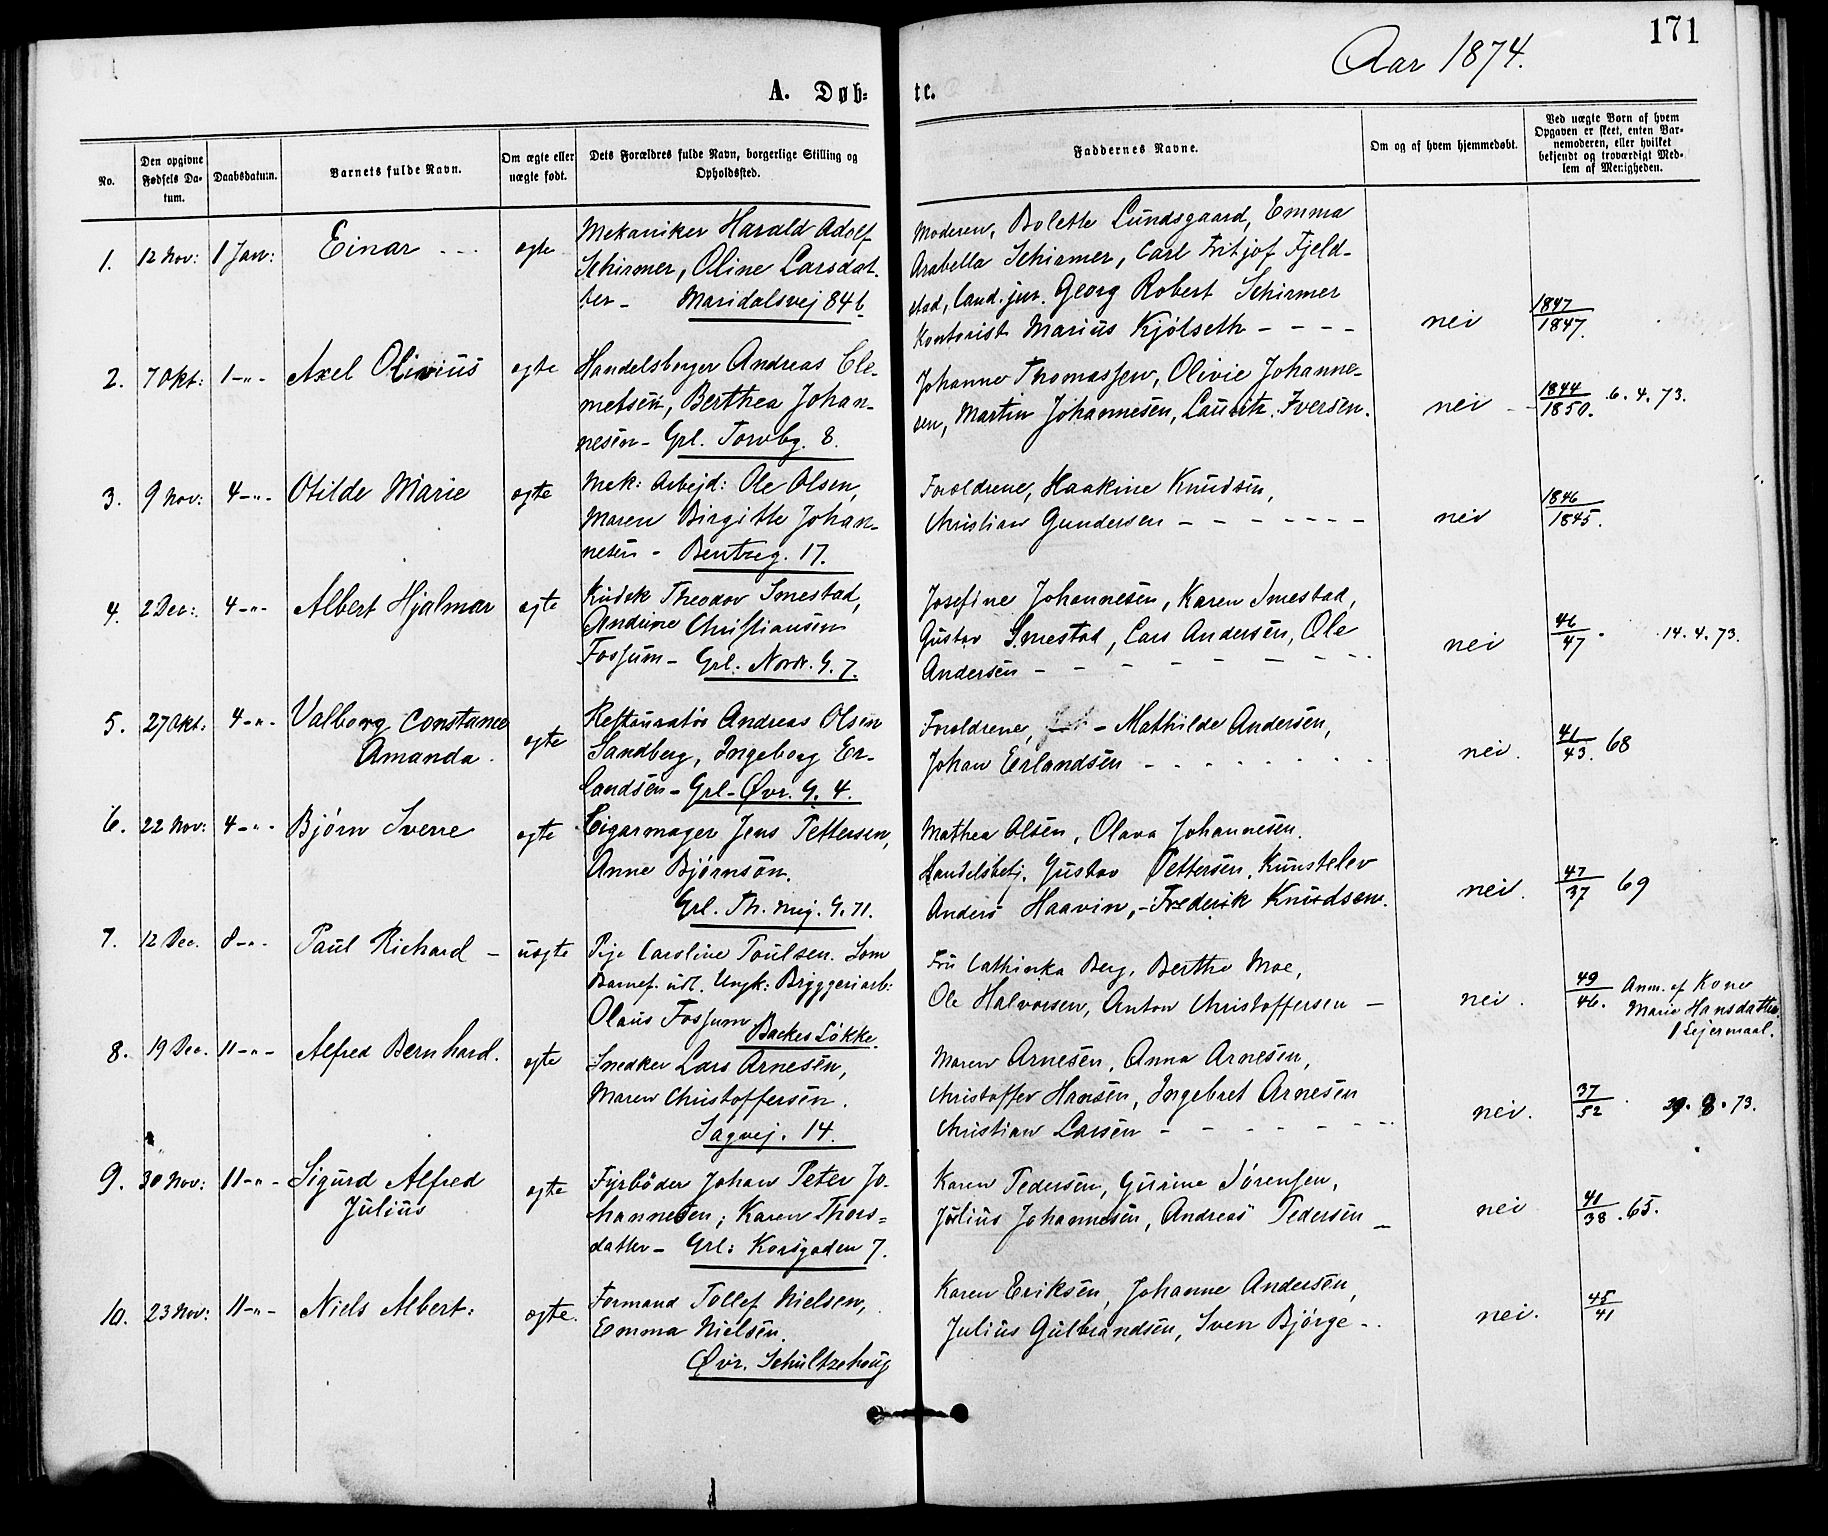 171
Aar 1874.
A. Døb-
te.
No.
Den opgivne Fødsels Da-
tum.
Daabsdatum.
Barnets fulde Navn.
Om ægte eller
uægte født.
Dets Forældres fulde Navn, borgerlige Stilling og
Opholdssted.
Faddernes Navne.
Om og af hvem hjemmedøbt.
Ved uægte Born af hvem
Opgaven er skeet, enten Bar-
nemoderen, eller hvilket
bekjendt og troværdigt Med-
lem af Menigheden.
1. 12 Nov: 1 Jan: Einar - - - ægte
Mekaniker Harald Adolf
Schirmer, Oline Larsdat-
ter - Maridalsvej 84 b.
Moderen, Bolette Lundsgaard, Emma
Arabella Schirmer, Carl Fritjof Fjeld-
stad, Cand. jur. Georg Robert Schirmer
Kontorist Marius Kjølseth - - - -
nei
1847
1847.
2. 7 Okt: 1 -"- Axel Olivius ægte
Handelsborger Andreas Cle-
metsen, Berthea Johan-
nesen - Grl. Torvbg. 8.
Johanne Thomassen, Olivie Johanne-
sen, Martin Johannesen, Lauritz Iversen.
nei -
1844
1850. 6. 4. 73.
3. 9 Nov: 4 -"- Otilde Marie ægte
Mek: Arbejd: Ole Olsen,
Maren Birgitte Johan-
nesen - Bentzeg. 17.
Forældrene, Haakine Knudsen,
Christian Gundersen - - - - - - -
nei
1846
1845.
4. 2 Dec: 4 -"- Albert Hjalmar ægte
Kudsk Theodor Smestad,
Andrine Christiansen
Fossum - Grl. Nordr. G. 7.
Josefine Johannesen, Karen Smestad,
Gustav Smestad, Lars Andersen, Ole
Andersen - - - - - - - - -
nei
46
47. 14. 4. 73.
5. 27 Okt: 4 -"- Valborg Constance
Amanda. ægte
Restauratør Andreas Olsen
Sandberg, Ingeborg Er-
landsen - Grl - Øvr. G. 4.
Forældrene, - Mathilde Andersen,
Johan Erlandsen - - - - - - - -
nei.
41
43. 68
6. 22 Nov: 4 -"- Bjørn Sverre ægte
Cigarmager Jens Pettersen,
Anne Bjørnson.
Grl. Th. Mej. G. 71.
Mathea Olsen, Olava Johannesen.
Handelsbetj. Gustav Pettersen, Kunstelev
Anders Haavin, - Frederik Knudsen.
nei.
47
37 69
7. 12 Dec. 8 -"- Paul Richard - uægte
Pige Caroline Poulsen. Som
Barnef. udl. Ungk: Bryggeriarb:
Olaus Fossum Backes Løkke.
Fru Cathinka Berg, Berthe Moe,
Ole Halvorsen, Anton Christoffersen -
nei.
49
46. Anm. af Kone
Marie Hansdatter
1 Lejermaal.
8. 19 Dec. 11 -"- Alfred Bernhard. ægte
Snedker Lars Arnesen,
Maren Christoffersen.
Sagvej. 14.
Maren Arnesen, Anna Arnesen,
Christoffer Hansen, Ingebret Arnesen
Christian Larsen - - - - - - -
nei.
37
52 . 8. 73.
9. 30 Nov: 11 -"- Sigurd Alfred
Julius ægte
Fyrbøder Johan Peter Jo-
hannesen; Karen Thors-
datter - Grl: Korsgaden 7.
Karen Pedersen, Gurine Sørensen,
Julius Johannesen, Andreas Pedersen -
nei
41
38. 65.
10. 23 Nov: 11 -"- Niels Albert: ægte.
Formand Tollef Nielsen,
Emma Nielsen.
Øvr. Schultzehaug
Karen Eriksen, Johanne Andersen,
Julius Gulbrandsen, Sven Bjørge - .
nei.
45
41